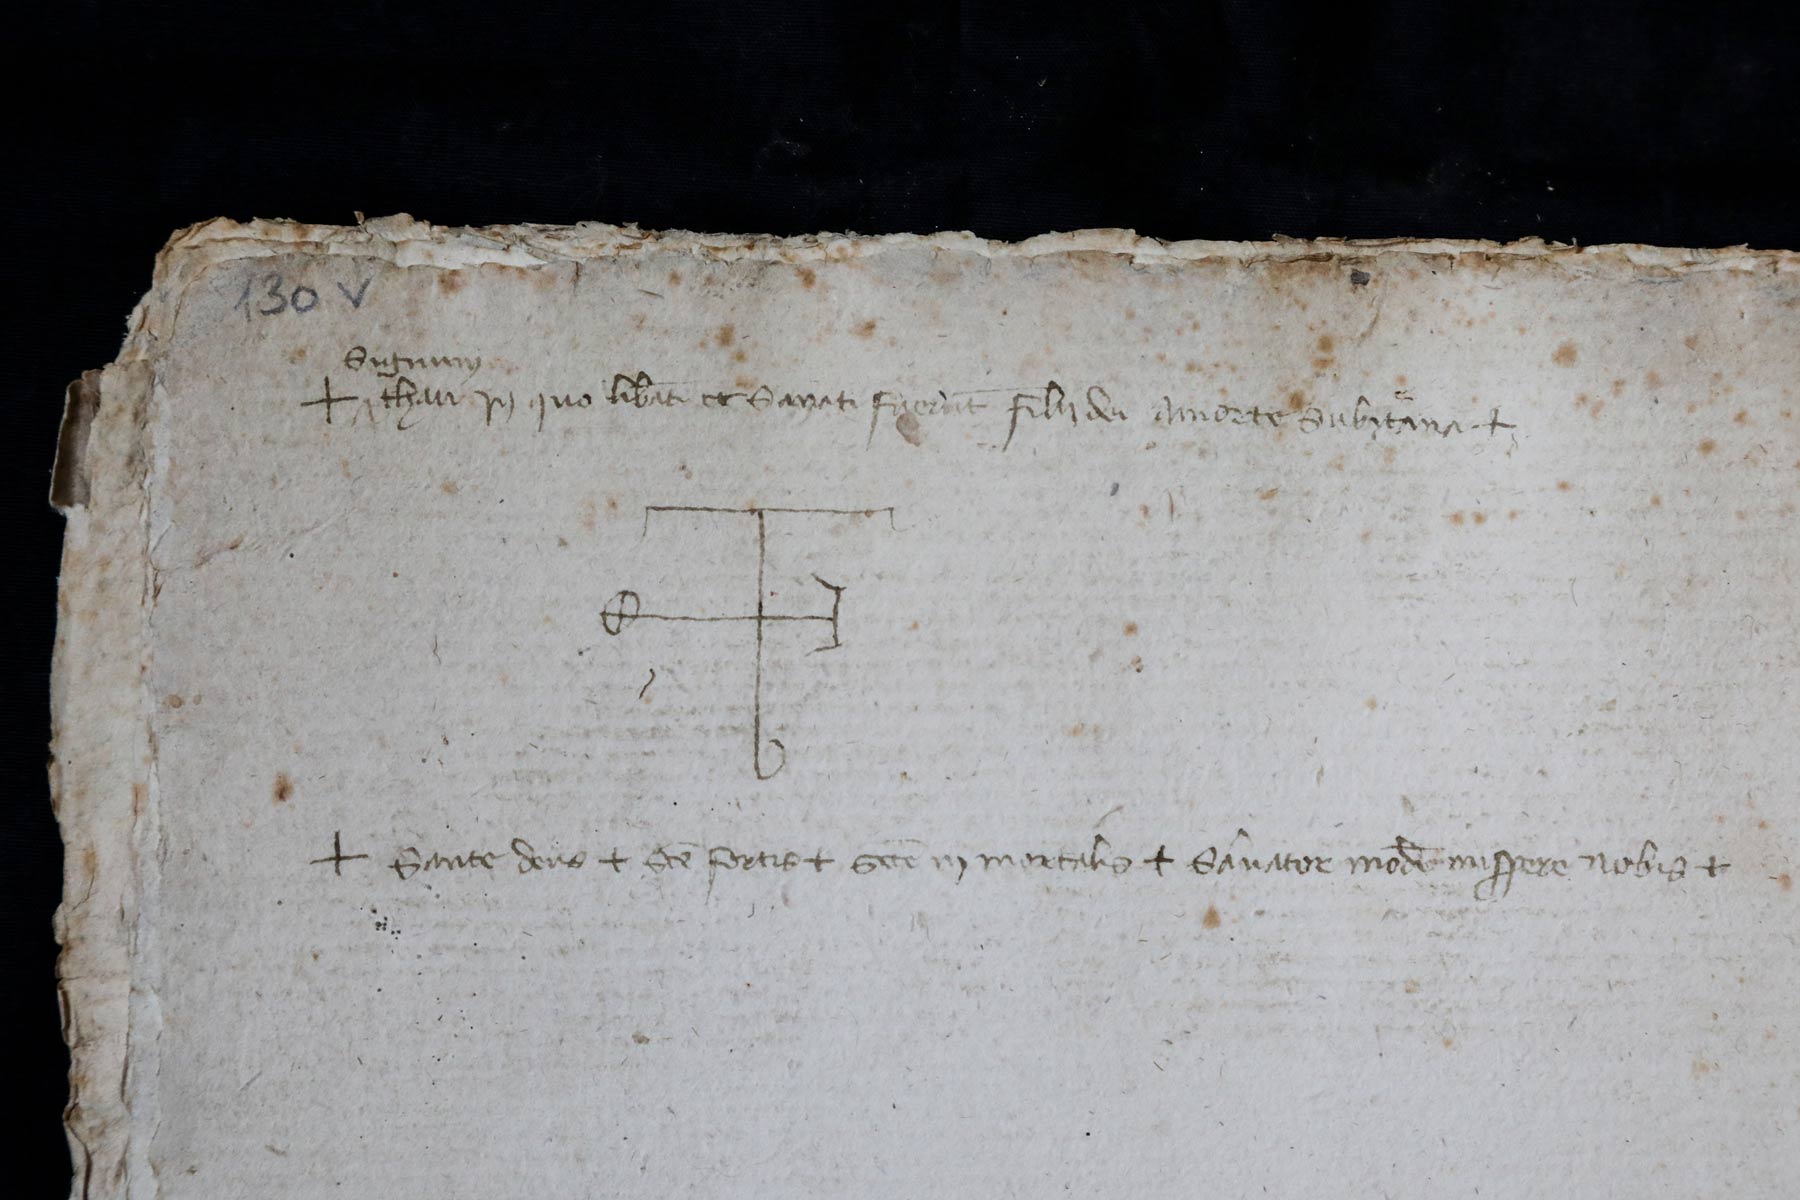 130 v
Signum
+ thau in quo libati et Sanati fuerũt filij dei amorte Subitana +
+ Sante deus + Scẽ fortis + Scẽ in mortalis + Savator modi missere nobis +